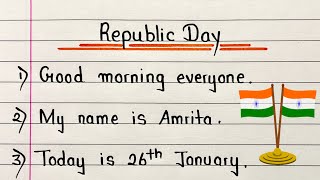 Republic Day
1) Good morning everyone.
2) My name is Amrita.
3) Today is 26th January.